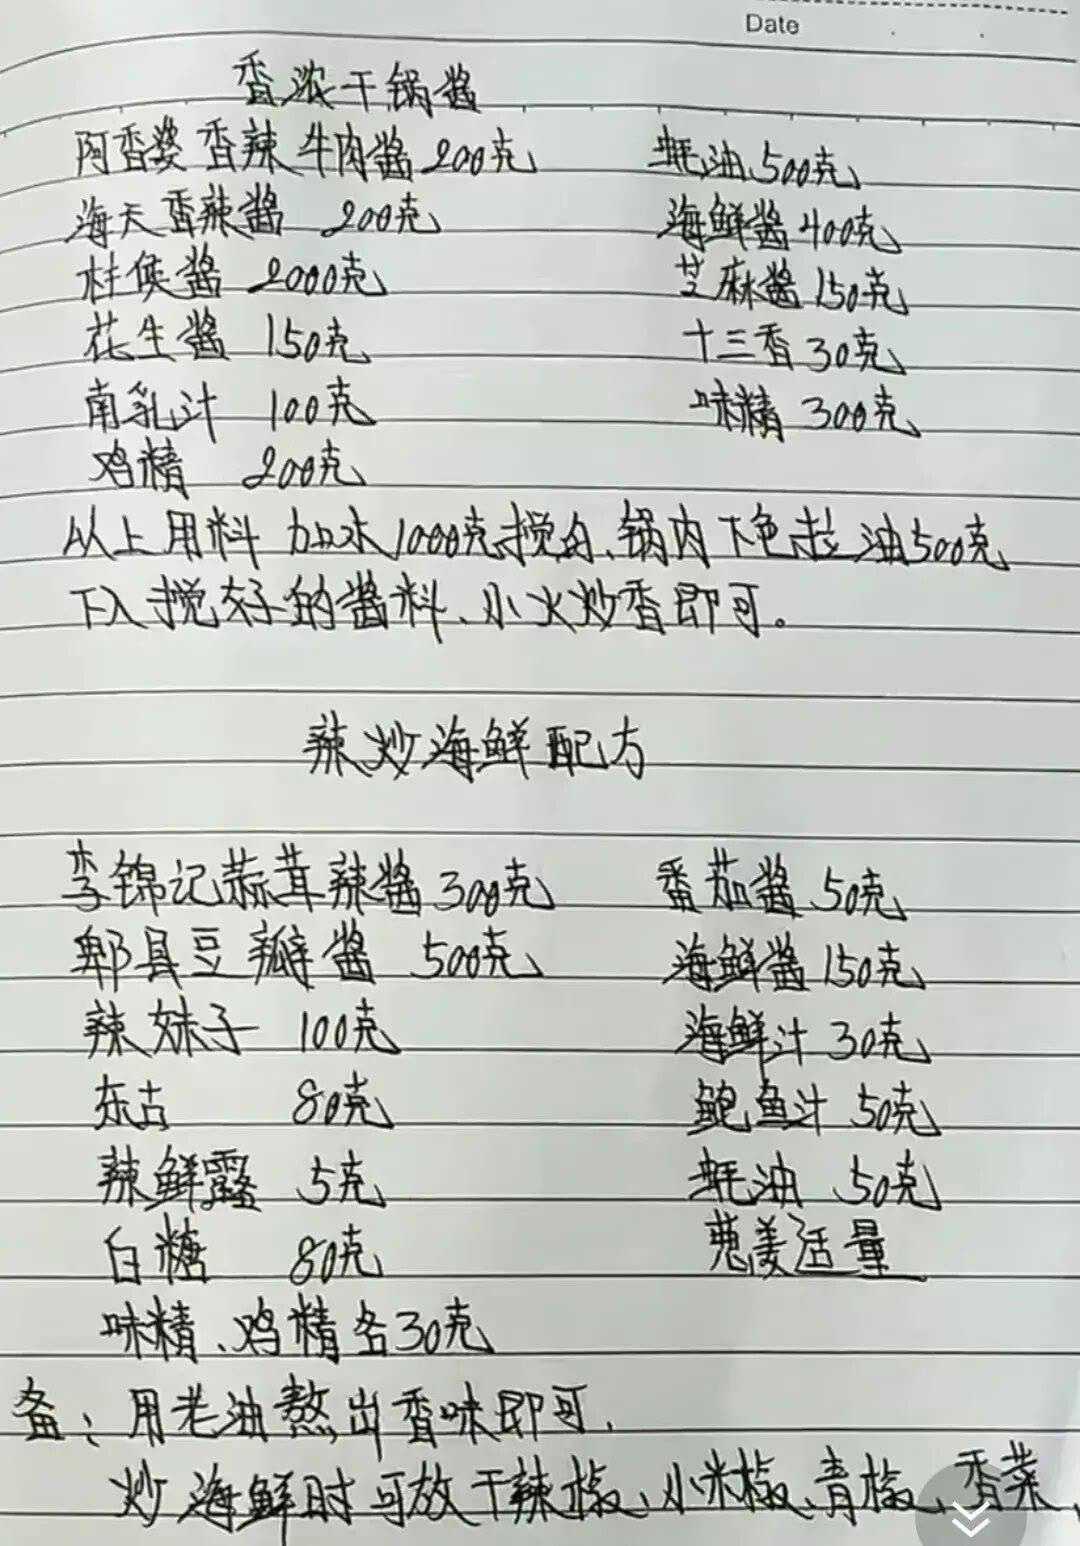 Date
香浓干锅酱
阿香婆香辣牛肉酱200克 蚝油500克
海天香辣酱 200克 海鲜酱400克
柱侯酱 2000克 芝麻酱150克
花生酱 150克 十三香30克
南乳汁 100克 味精300克
鸡精 200克
以上用料加水1000克搅匀、锅内下色拉油500克
下入搅好的酱料、小火炒香即可。
辣炒海鲜配方
李锦记蒜茸辣酱300克 番茄酱50克
郫县豆瓣酱 500克 海鲜酱150克
辣妹子 100克 海鲜汁30克
东古 80克 鲍鱼汁50克
辣鲜露 5克 蚝油50克
白糖 80克 葱姜适量
味精、鸡精各30克
备: 用老油熬出香味即可,
炒海鲜时可放干辣椒、小米椒、青椒、香菜、